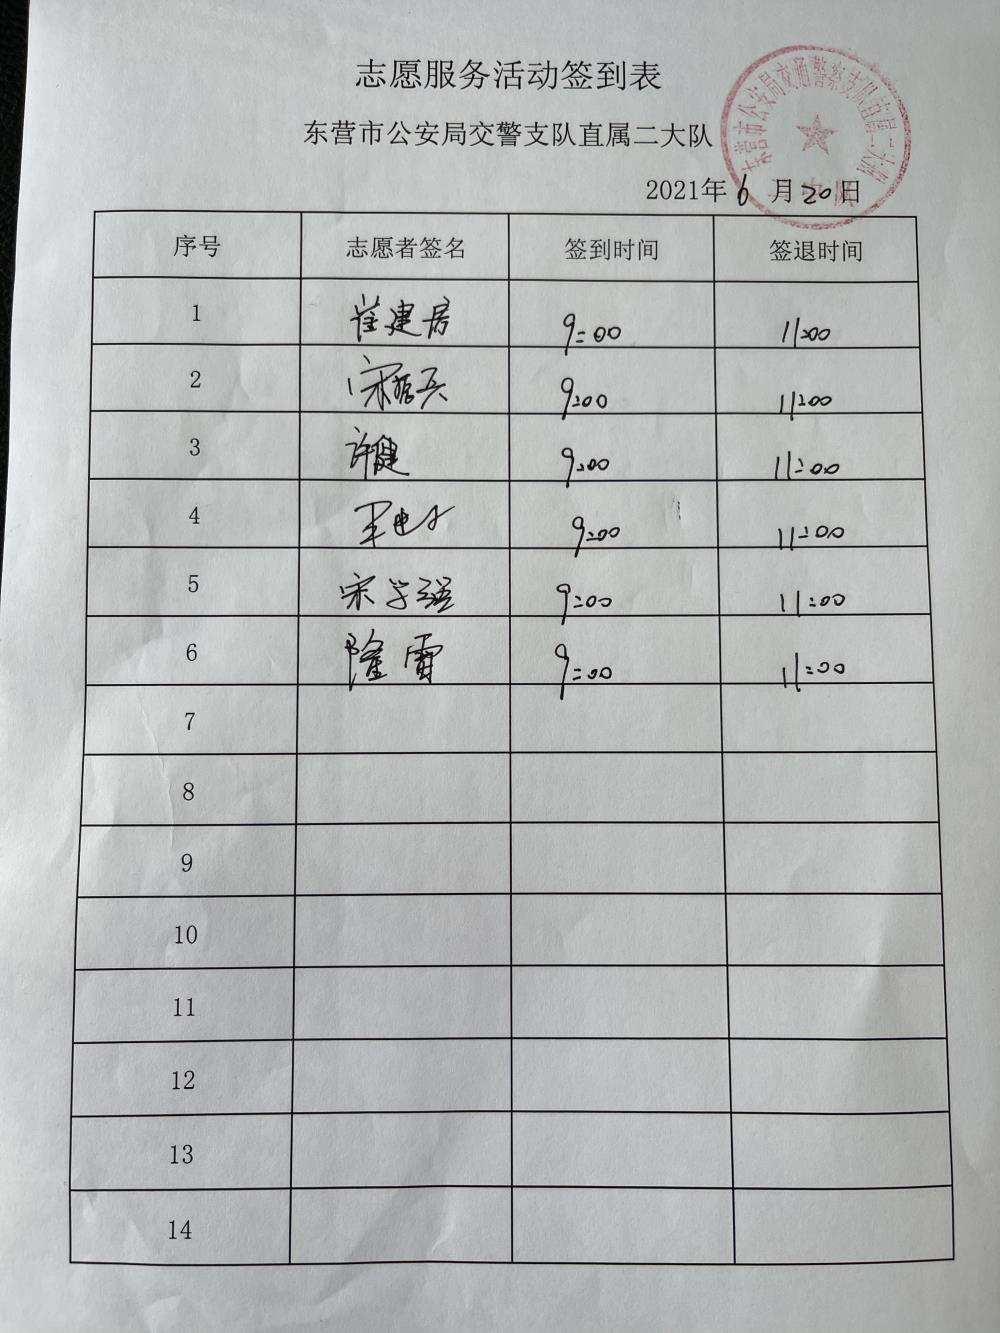 志愿服务活动签到表
东营市公安局交警支队直属二大队
东营市公安局交通警察支队直属二大队
2021年 6 月 20 日
序号 志愿者签名 签到时间 签退时间
1 崔建房 9:00 11:00
2 宋振兵 9:00 11:00
3 许健 9:00 11:00
4 9:00 11:00
5 宋学强 9:00 11:00
6 隆雷 9:00 11:00
7
8
9
10
11
12
13
14